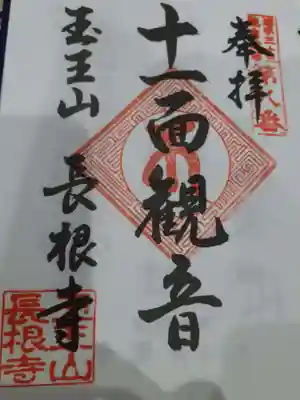 奉拝
十一面観音
玉王山 長根寺
玉王山
長根寺